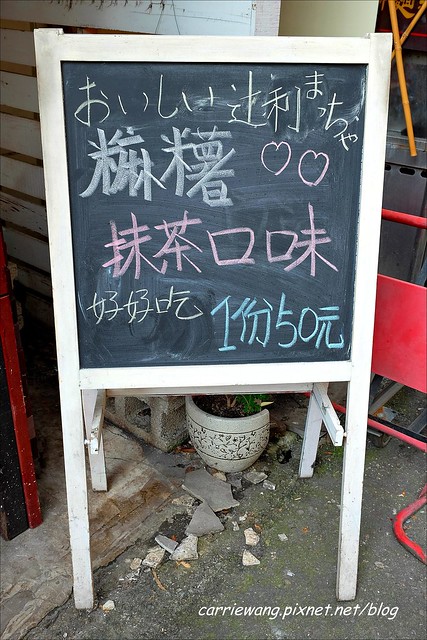 おいしい辻利まっちゃ
䊳糬♡♡
抹茶口味
好好吃 1份50元
carriewang.pixnet.net/blog